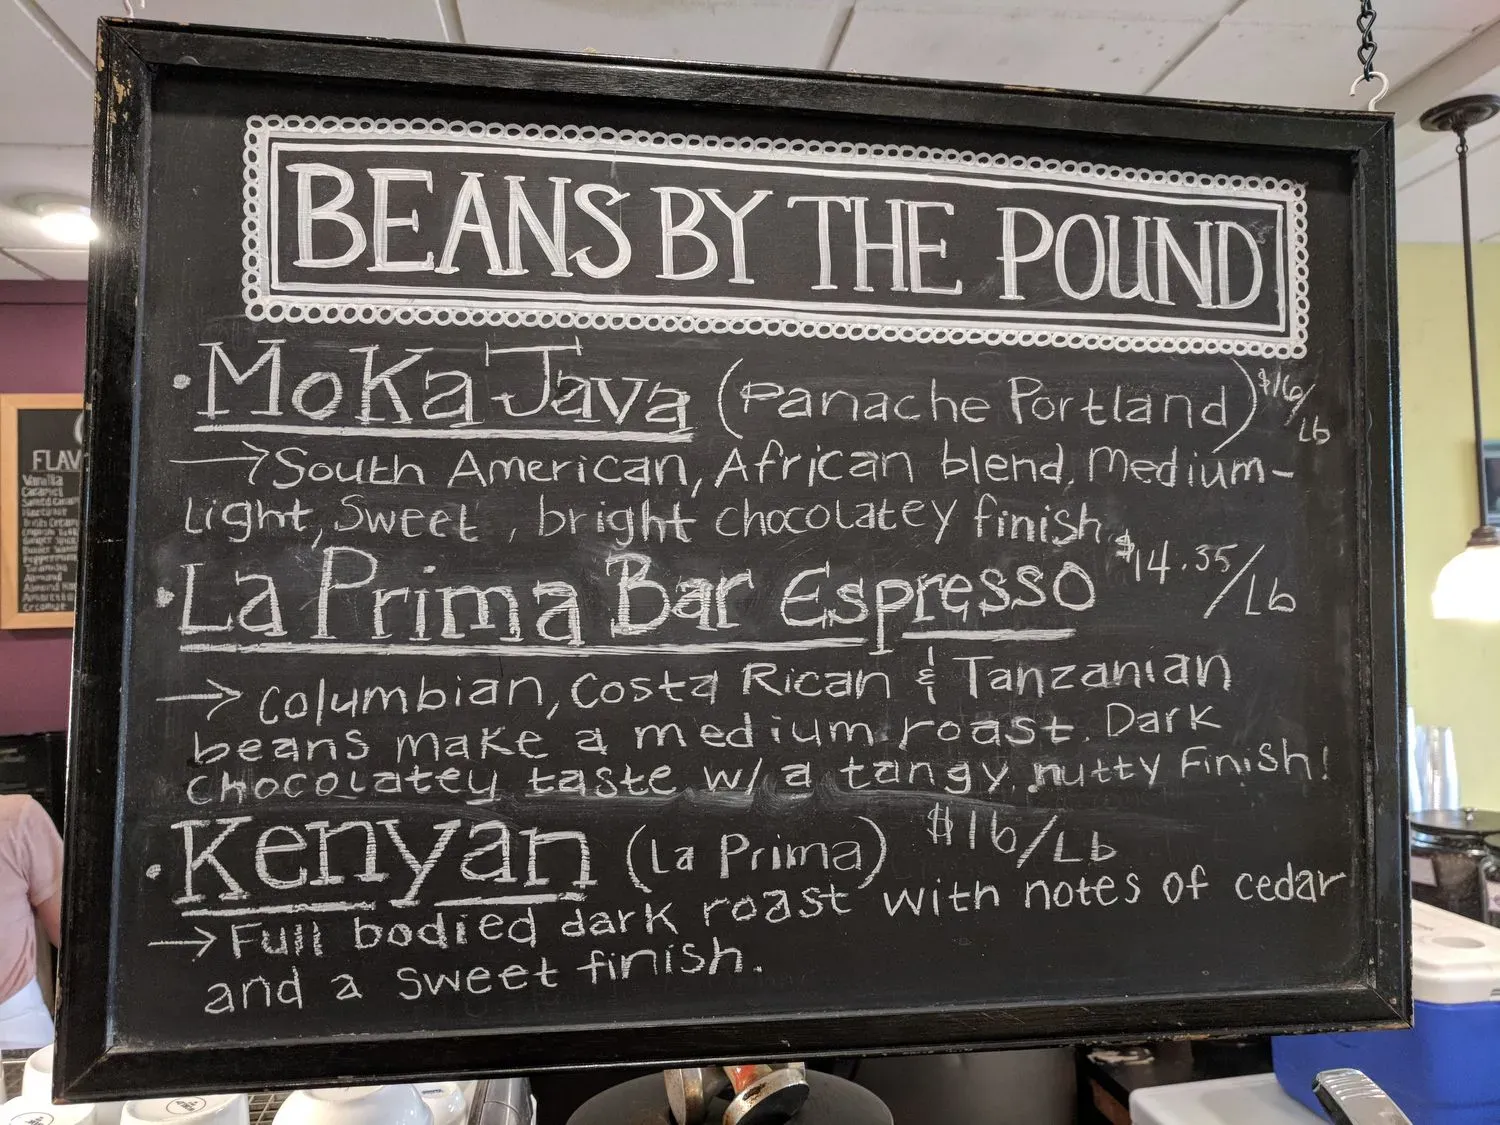 BEANS BY THE POUND
• Moka Java (Panache Portland) $16/Lb
→ South American, African blend. Medium-
Light, Sweet, bright chocolatey finish.
• La Prima Bar Espresso $14.35/Lb
→ Columbian, Costa Rican & Tanzanian
beans make a medium roast. Dark
chocolatey taste w/ a tangy, nutty Finish!
• Kenyan (La Prima) $16/Lb
→ Full bodied dark roast with notes of cedar
and a sweet finish.
FLAV
Vanilla
Caramel
Almond